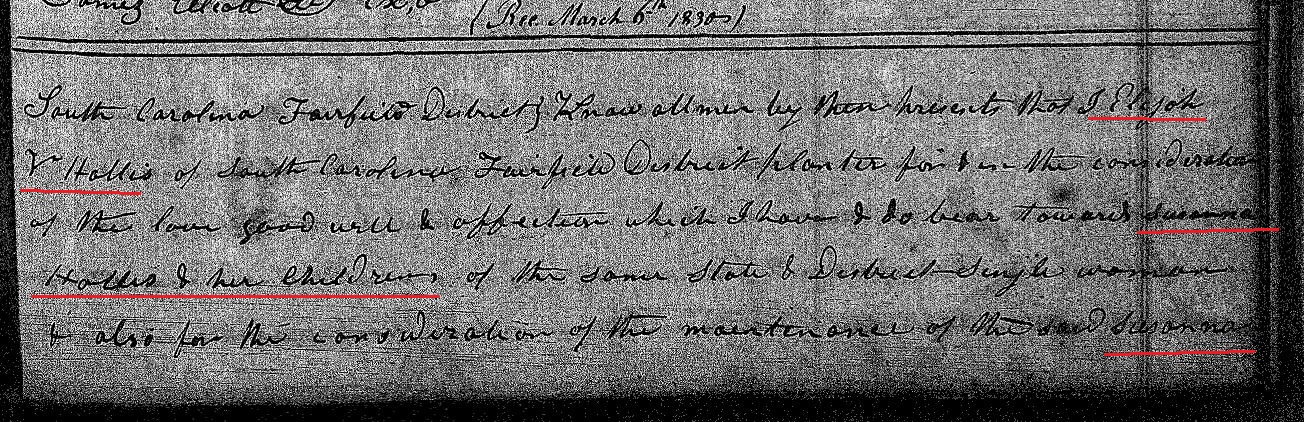 James Elliott
(Rec March 6th 1830)
South Carolina Fairfield District } Know all men by these presents that I Elijah
Hollis of South Carolina Fairfield District planter for & in the consideration
of the love good will & affection which I have & do bear towards Susanna
Hollis & her Children of the same State & District Single woman
& also for the consideration of the maintenance of the said Susanna